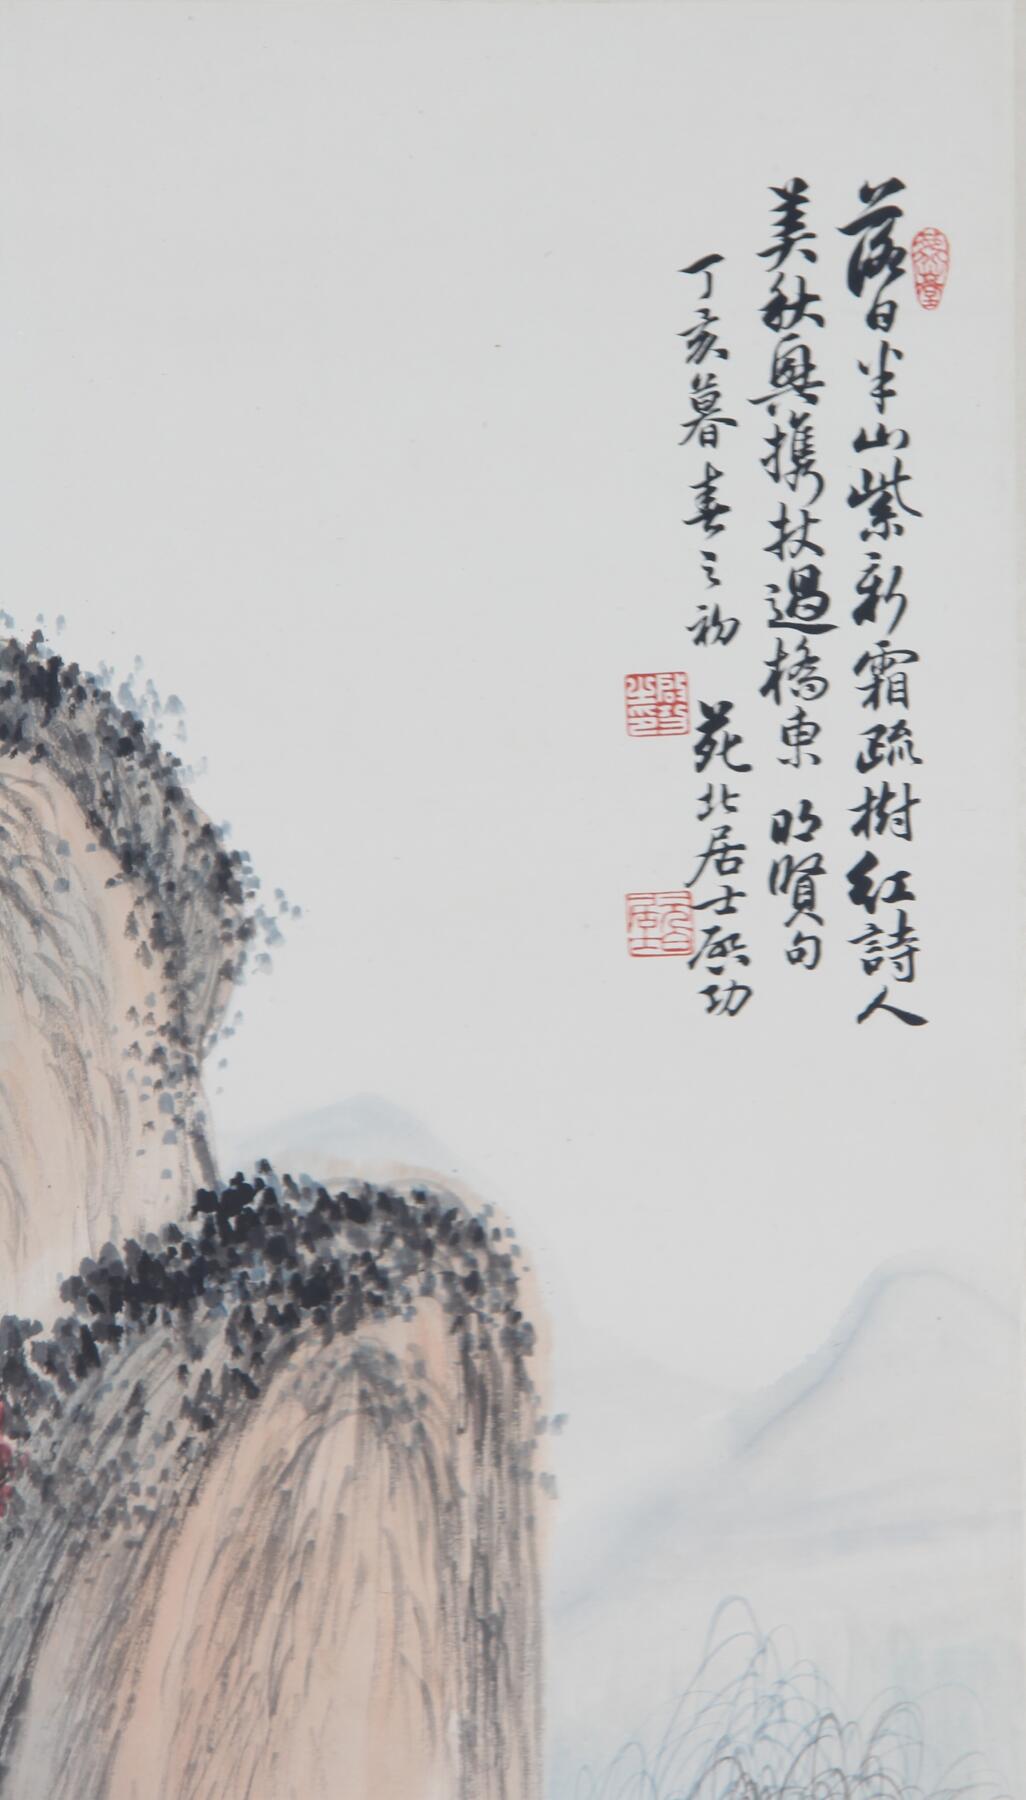 落日半山紫新霜疏樹紅詩人
美秋興攜杖過橋東 明賢句
丁亥暮春之初 苑北居士啟功
啟功之印
元白居士